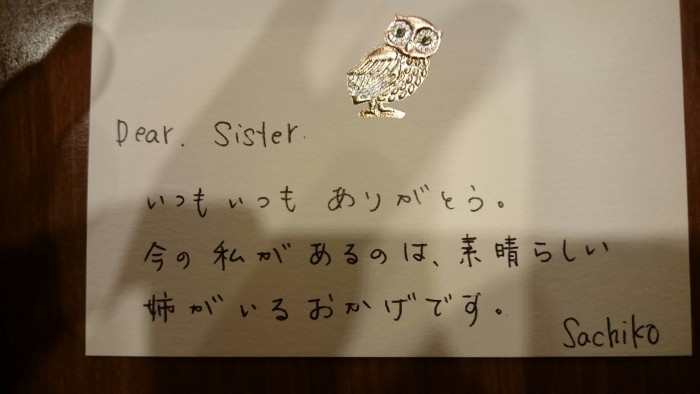 Dear. Sister.
いつもいつも ありがとう。
今の私があるのは、素晴らしい
姉がいるおかげです。
Sachiko